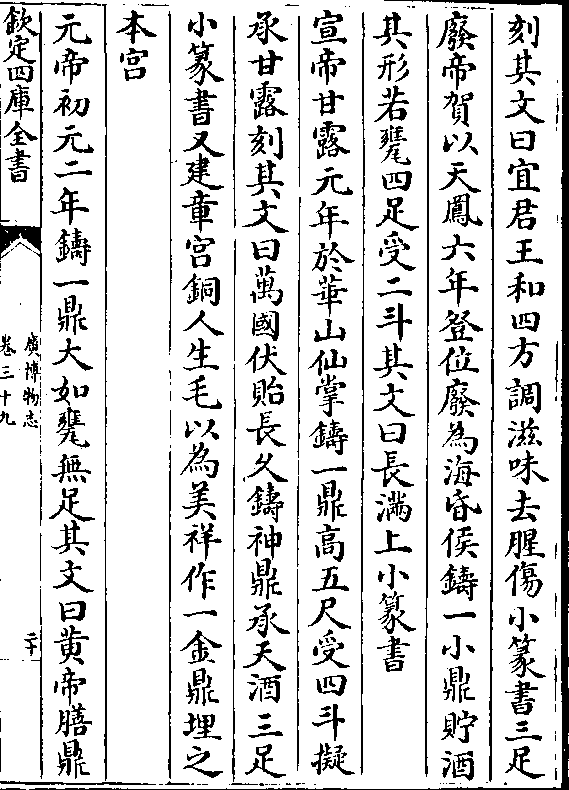 刻其文曰宜君王和四方調滋味去腥傷小篆書三足
廢帝賀以天鳳六年登位廢為海昏侯鑄一小鼎貯酒
其形若甕四足受二斗其文曰長滿上小篆書
宣帝甘露元年於華山仙掌鑄一鼎高五尺受四斗擬
承甘露刻其文曰萬國伏貽長久鑄神鼎承天酒三足
小篆書又建章宮銅人生毛以為美祥作一金鼎埋之
本宮
元帝初元二年鑄一鼎大如甕無足其文曰黃帝膳鼎
欽定四庫全書
廣博物志
卷三十九
二十